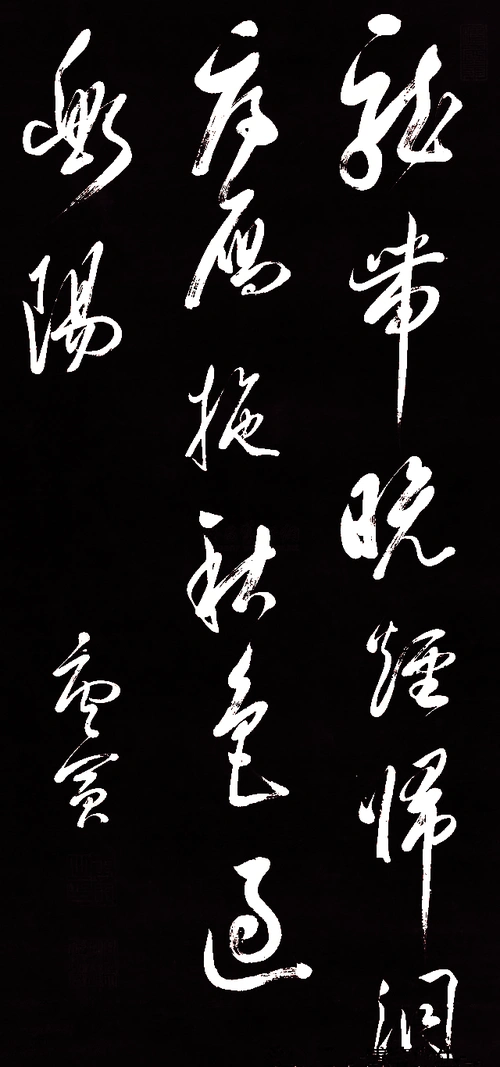 龍帶晚煙歸洞
府雁拖秋色過
衡陽
唐寅